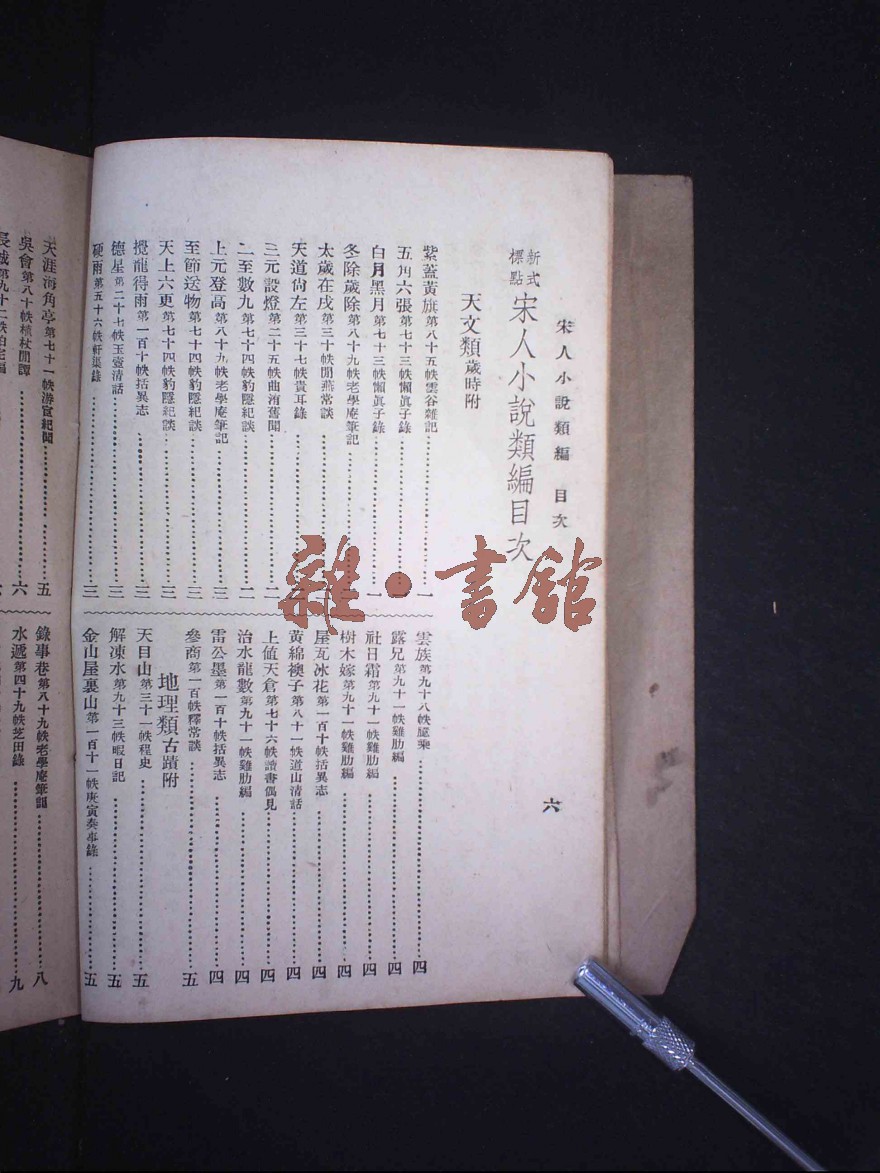 宋人小說類編 目次
六
新式
標點
宋人小說類編目次
天文類歲時附
紫蓋黃旗第八十五帙雲谷雜記一
五角六張第七十三帙懶眞子錄一
白月黑月第七十三帙懶眞子錄一
冬除歲除第八十九帙老學庵筆記一
太歲在戌第三十帙閒燕常談
天道尙左第三十七帙貴耳錄
三元設燈第二十五帙曲洧舊聞二
二至數九第七十四帙豹隱紀談二
上元登高第八十九帙老學庵筆記三
至節送物第七十四帙豹隱紀談三
天上六更第七十四帙豹隱紀談三
攪龍得雨第一百十帙括異志三
德星第二十七帙玉壺清話三
硬雨第五十六帙軒渠錄三
雲族第九十八帙臆乘四
露兄第九十一帙雞肋編四
社日霜第九十一帙雞肋編四
樹木嫁第九十一帙雞肋編四
屋瓦冰花第一百十帙括異志四
黃綿襖子第八十一帙道山清話四
上値天倉第七十六帙讀書偶見四
治水龍數第九十一帙雞肋編四
雷公墨第一百十帙括異志四
參商第一百帙釋常談五
地理類古蹟附
天目山第三十一帙程史五
解凍水第九十三帙暇日記五
金山屋裏山第一百十一帙庚寅奏事錄五
天涯海角亭第七十一帙游宦紀聞五
吳會第八十帙植杖閒譚六
長城第九十二帙泊宅編
錄事巷第八十九帙老學庵筆記八
水遞第四十九帙芝田錄九
雜·書舘